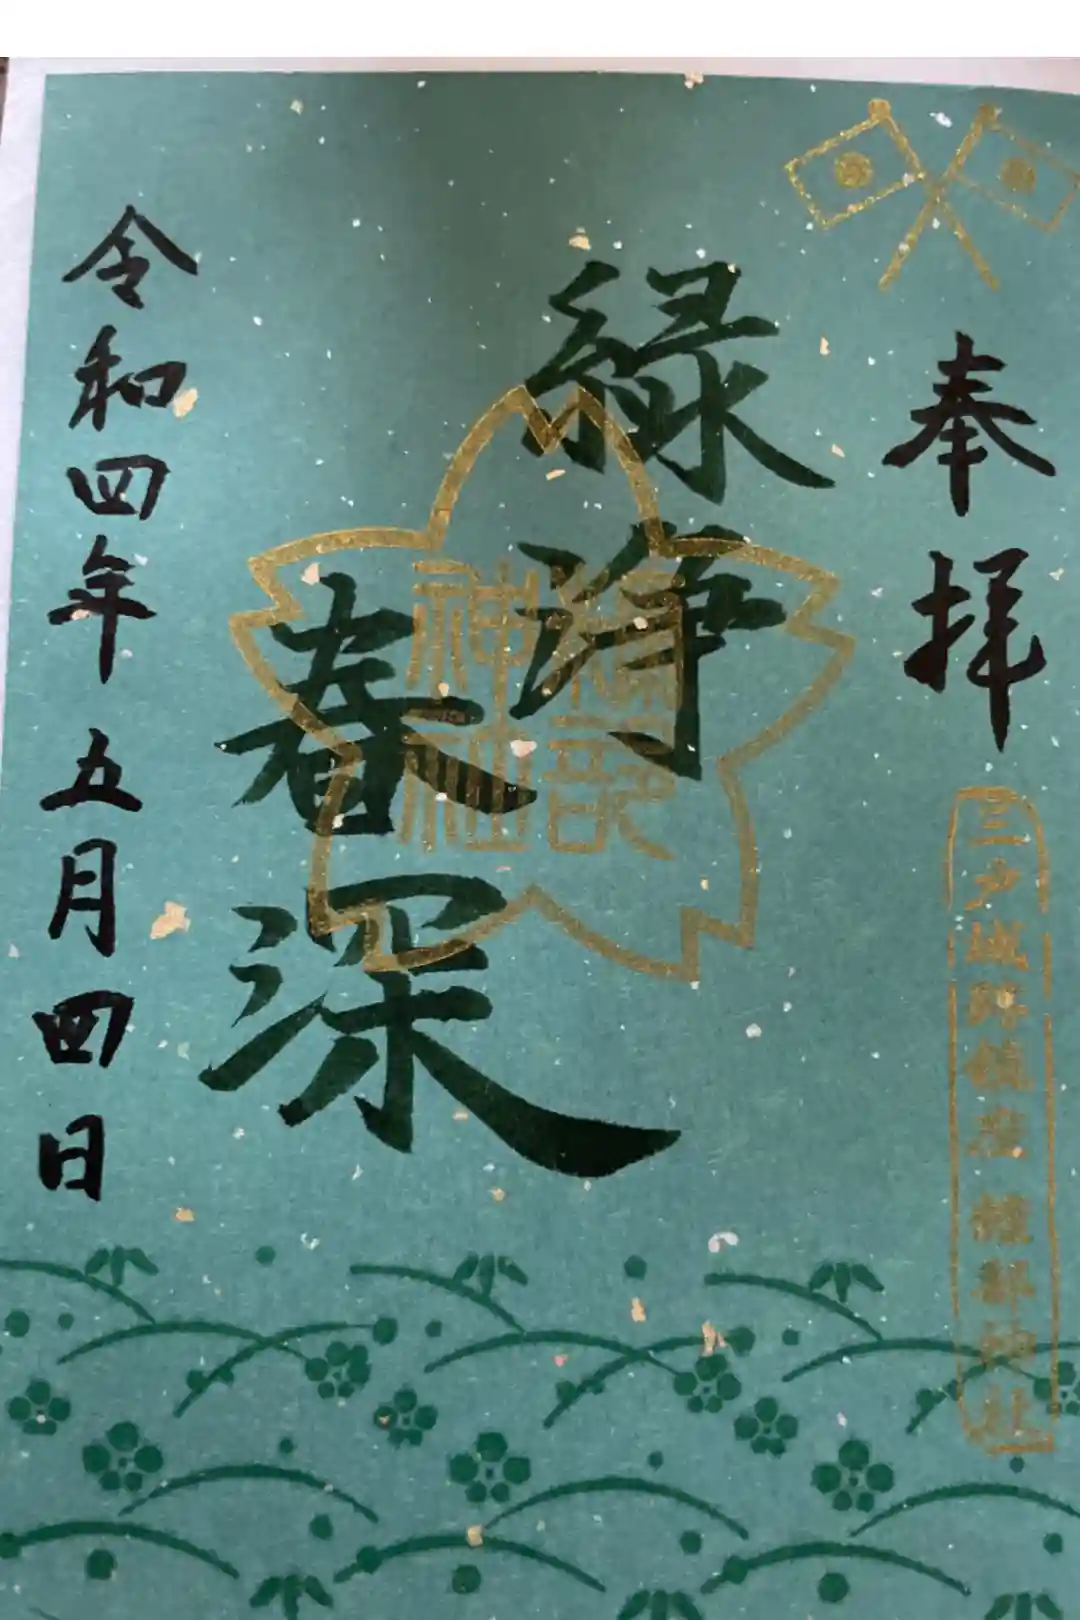 奉拝
三戸城跡鎮座 糠部神社
緑浄
春深
糠部
神社
令和四年五月四日